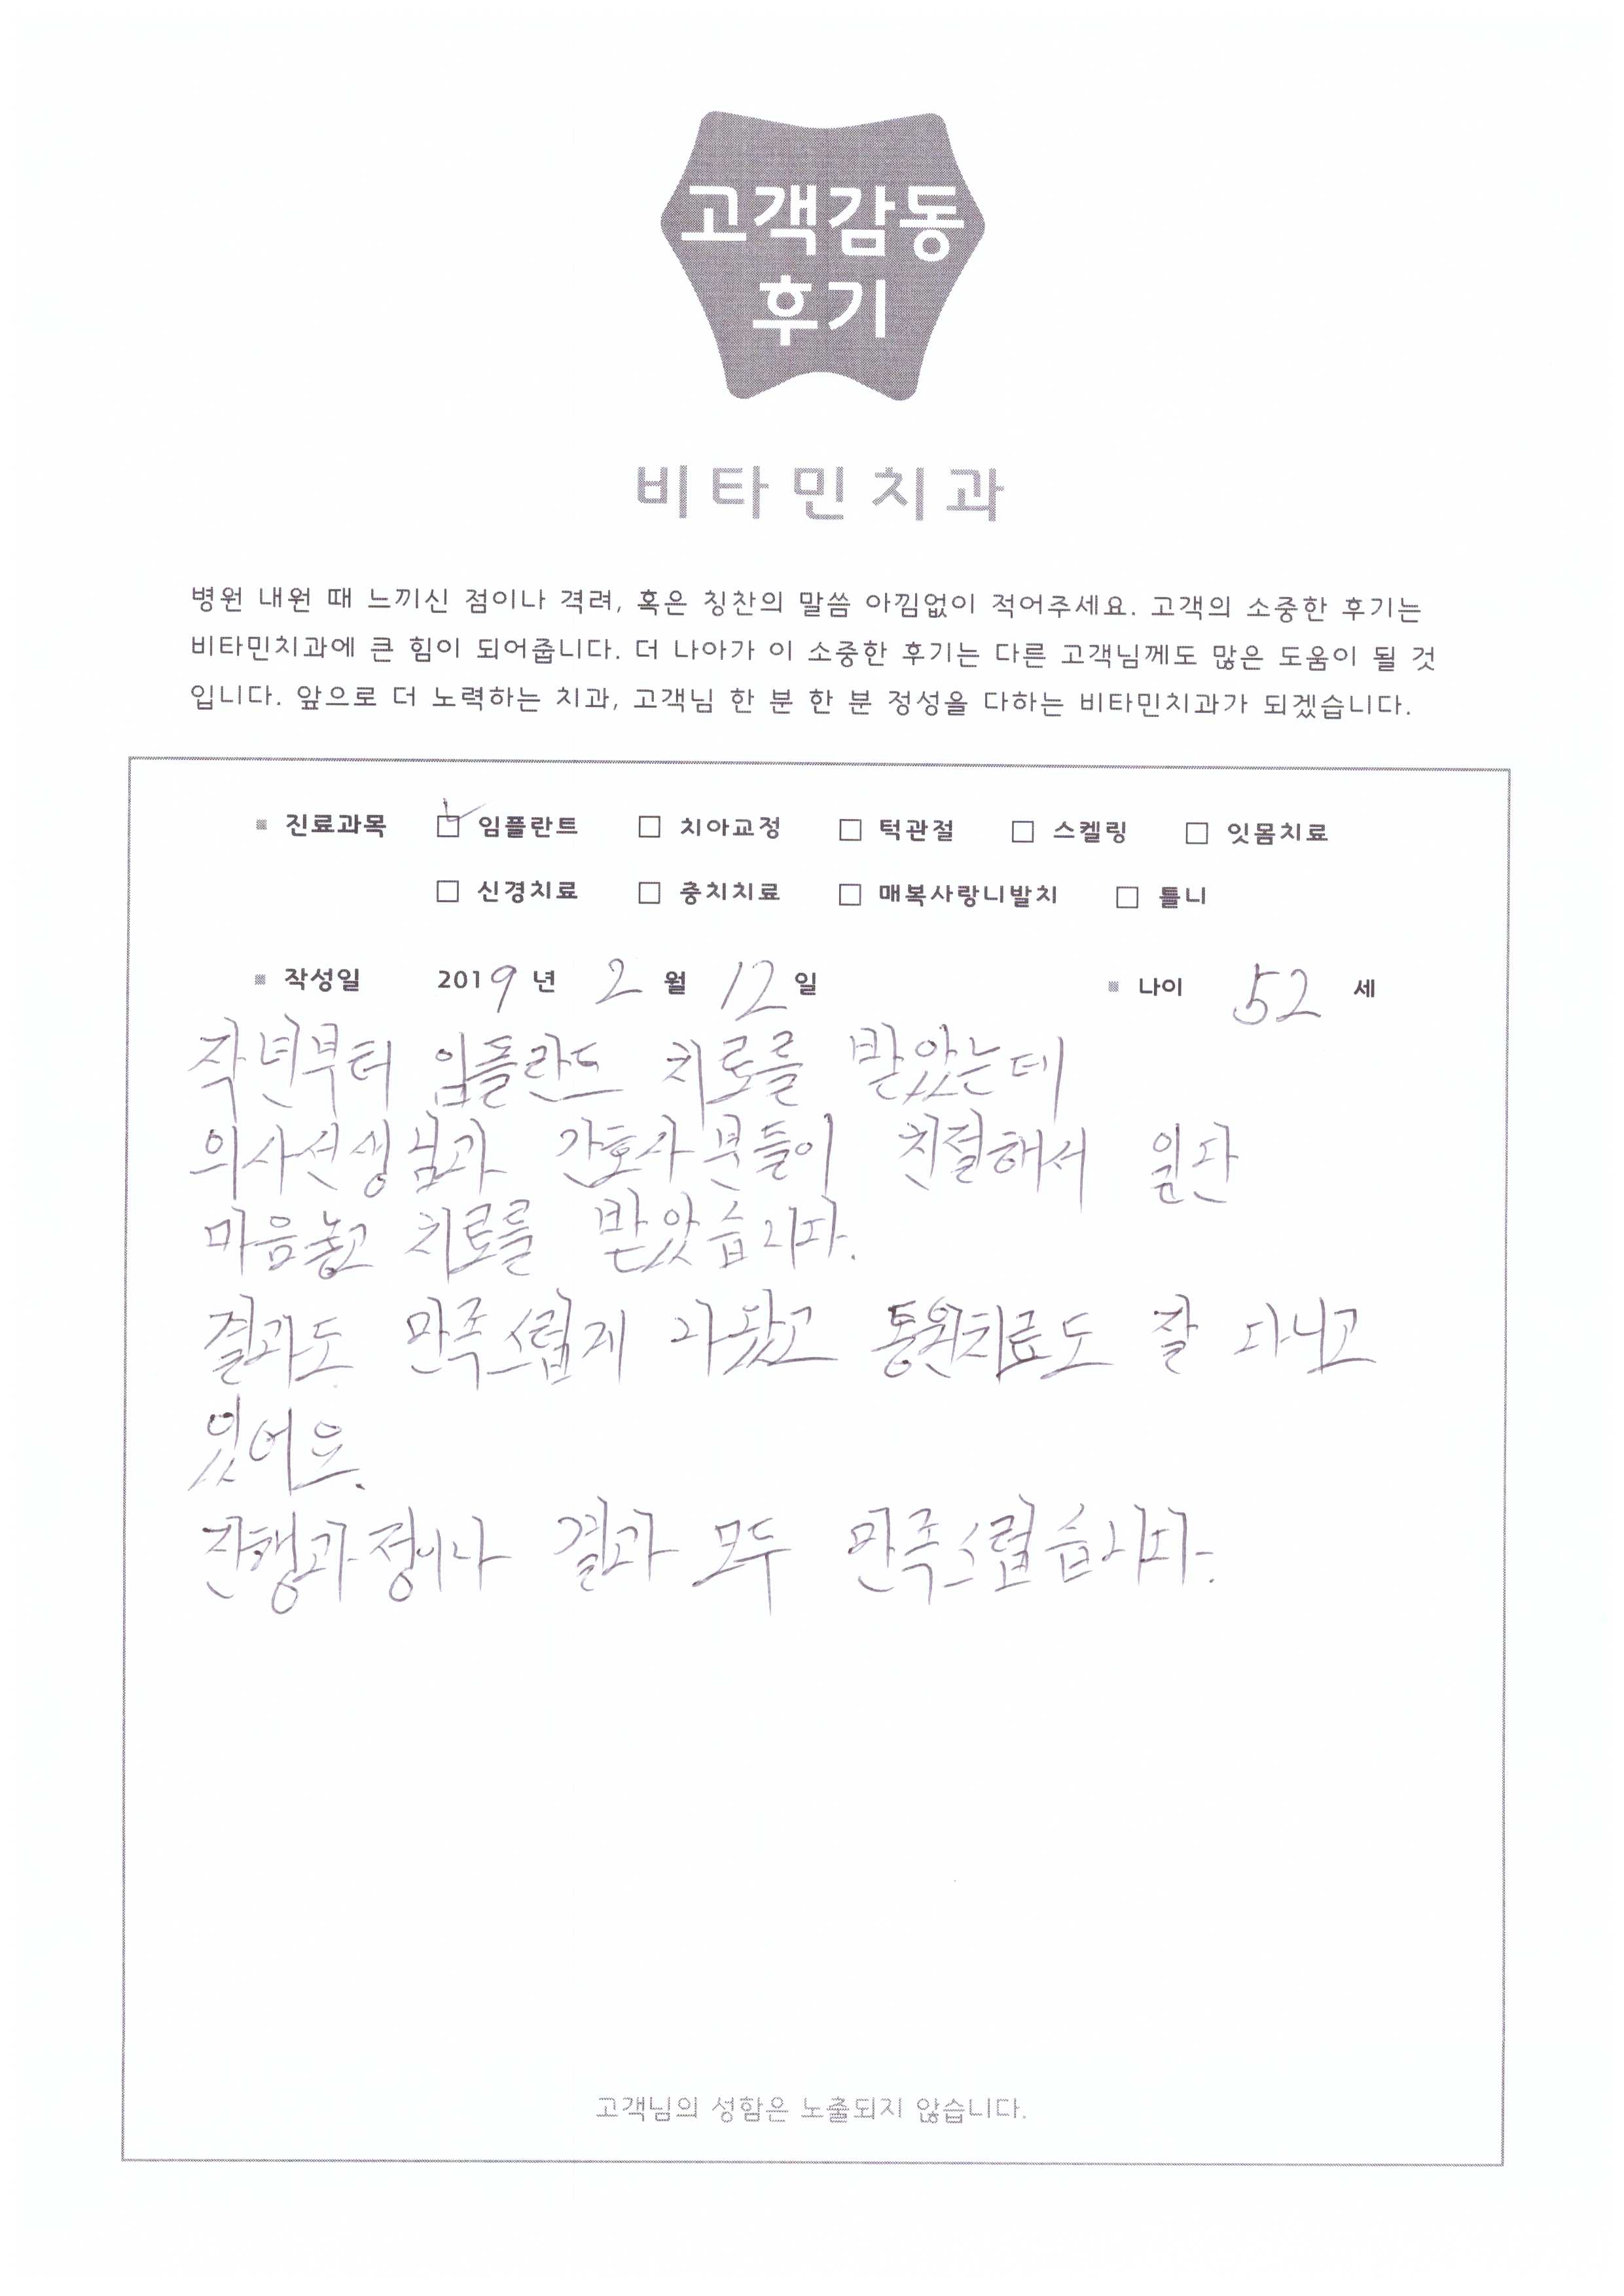 고객감동
후기
비타민치과
병원 내원 때 느끼신 점이나 격려, 혹은 칭찬의 말씀 아낌없이 적어주세요. 고객의 소중한 후기는
비타민치과에 큰 힘이 되어줍니다. 더 나아가 이 소중한 후기는 다른 고객님께도 많은 도움이 될 것
입니다. 앞으로 더 노력하는 치과, 고객님 한 분 한 분 정성을 다하는 비타민치과가 되겠습니다.
진료과목 임플란트 치아교정 턱관절 스켈링 잇몸치료
신경치료 충치치료 매복사랑니발치 틀니
작성일 2019년 2월 12일 나이 52세
작년부터 임플란트 치료를 받았는데
의사선생님과 간호사분들이 친절해서 일단
마음놓고 치료를 받았습니다.
결과도 만족스럽게 나왔고 통원치료도 잘 다니고
있어요.
진행과정이나 결과 모두 만족스럽습니다.
고객님의 성함은 노출되지 않습니다.